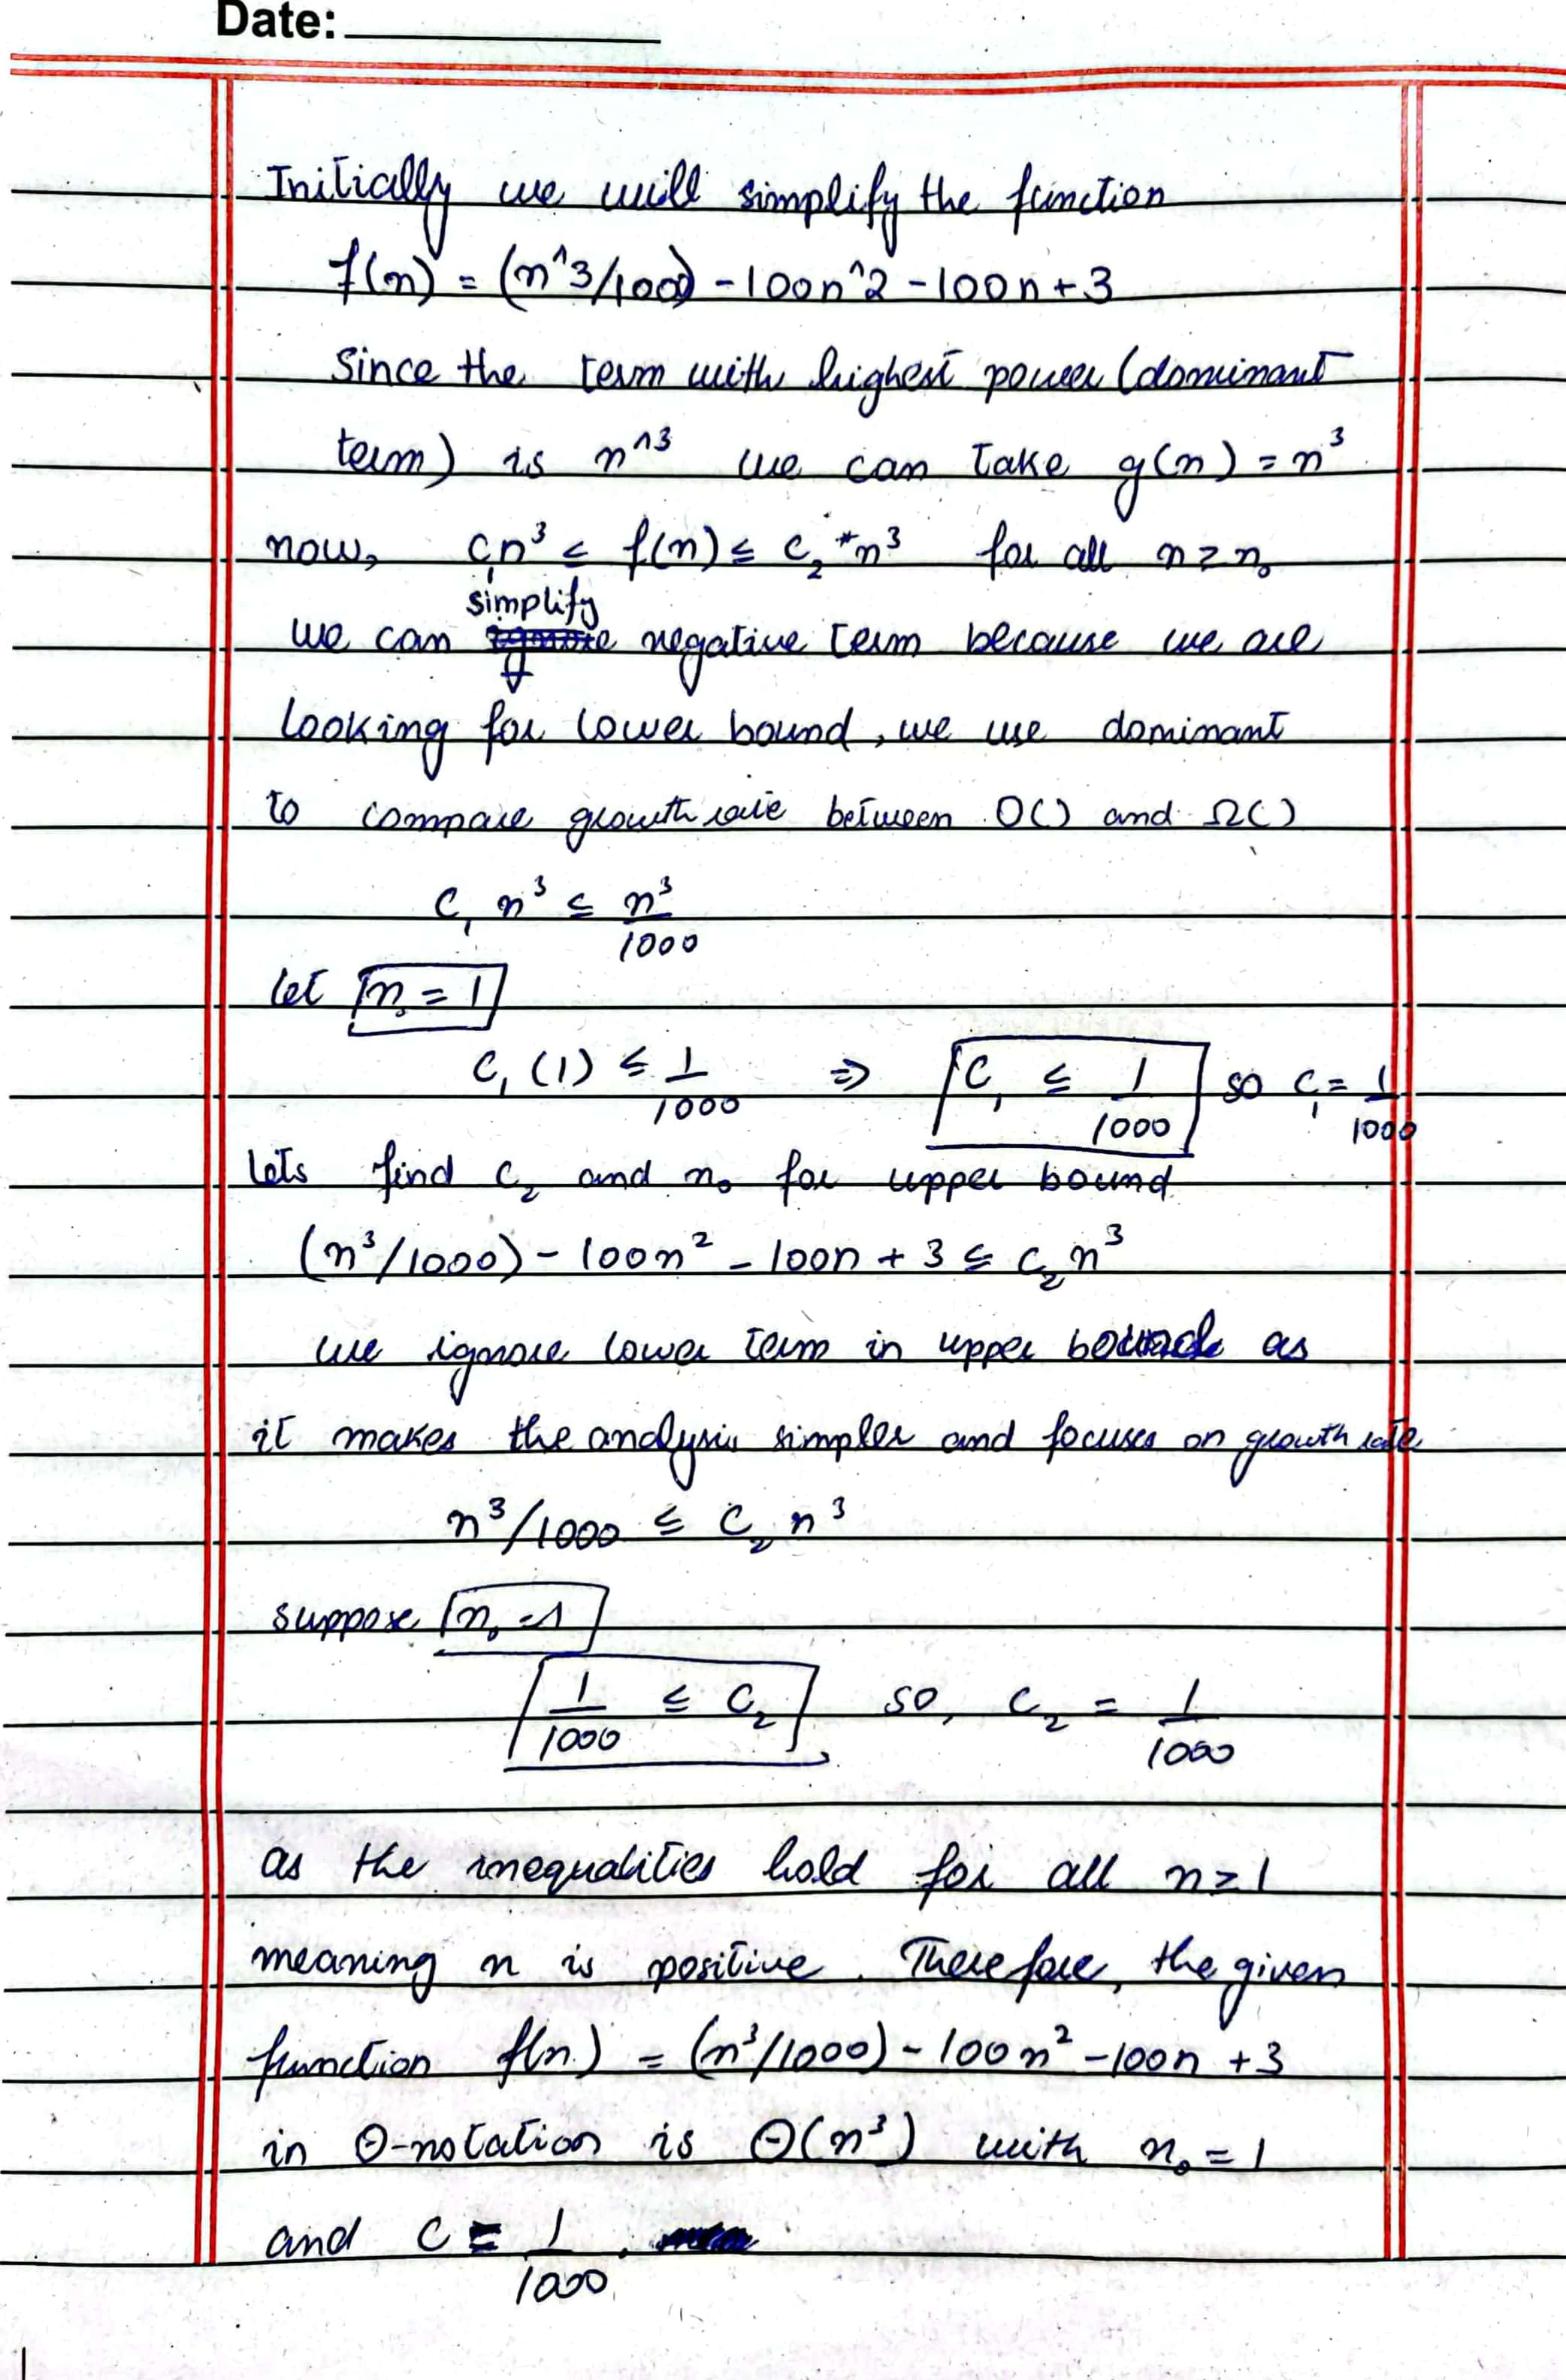 Date:
Initially we will simplify the function
f(n) = (n^3/1000) - 100n^2 - 100n + 3
Since the term with highest power (dominant
term) is n^3 we can take g(n) = n³
now, c₁n³ ≤ f(n) ≤ c₂*n³ for all n ≥ n₀
simplify
we can negative term because we are
looking for lower bound, we use dominant
to compare growth rate between O() and Ω()
C₁ n³ ≤ n³/1000
let n₀ = 1
C₁ (1) ≤ 1/1000 ⇒ C₁ ≤ 1/1000 so C₁ = 1/1000
Lets find C₂ and n₀ for upper bound
(n³/1000) - 100n² - 100n + 3 ≤ C₂n³
we ignore lower term in upper bound as
it makes the analysis simpler and focuses on growth rate
n³/1000 ≤ C₂ n³
suppose n₀ = 1
1/1000 ≤ C₂ so, C₂ = 1/1000
as the inequalities hold for all n ≥ 1
meaning n is positive. Therefore, the given
function f(n) = (n³/1000) - 100n² - 100n + 3
in Θ-notation is Θ(n³) with n₀ = 1
and C = 1/1000.